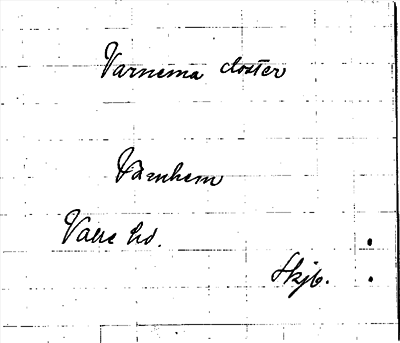 Varnema closter
Varnhem
Valle hd.
Skjb.